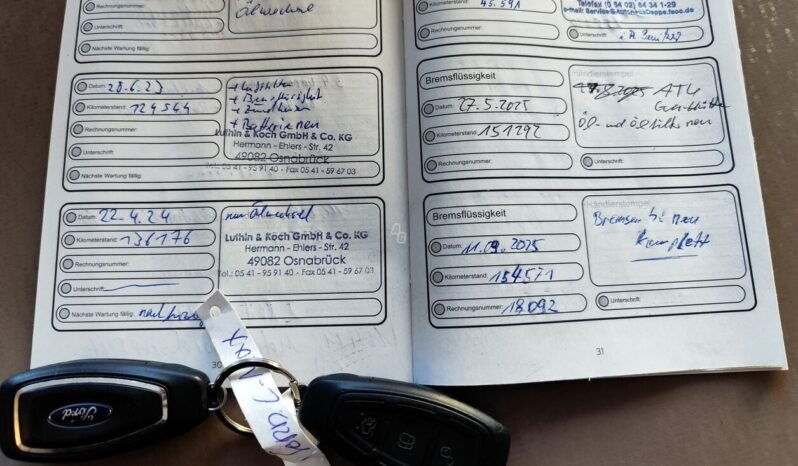 Rechnungsnummer:
Ölwechsel
Unterschrift:
Nächste Wartung fällig:
Datum: 28.6.23
+ Luftfilter
+ Bremsflüssigkeit
Kilometerstand: 124544
+ Zündkerzen
Rechnungsnummer:
+ Batterie neu
Luthin & Koch GmbH & Co. KG
Unterschrift:
Hermann - Ehlers - Str. 42
49082 Osnabrück
Tel.: 05 41 - 95 91 40 - Fax 05 41 - 59 67 03
Nächste Wartung fällig:
Datum: 22.4.24
nur Ölwechsel
Kilometerstand: 136176
Luthin & Koch GmbH & Co. KG
Hermann - Ehlers - Str. 42
Rechnungsnummer:
49082 Osnabrück
Tel.: 05 41 - 95 91 40 - Fax 05 41 - 59 67 03
Unterschrift:
Nächste Wartung fällig: nach
30
Kilometerstand: 45.591
Telefax (0 54 02) 64 34 1-29
e-mail: Service@AutohausDeppe.fsoc.de
Rechnungsnummer:
Unterschrift: i.A.
Bremsflüssigkeit
Händlerstempel
Datum: 27.5.2025
ATU
Kilometerstand: 151292
Öl- und Ölfilter neu
Rechnungsnummer:
Unterschrift:
Bremsflüssigkeit
Händlerstempel
Bremsen hi neu
Komplett
Datum: 11.09.2025
Kilometerstand: 154571
Rechnungsnummer: 18092
Unterschrift:
31
Ford